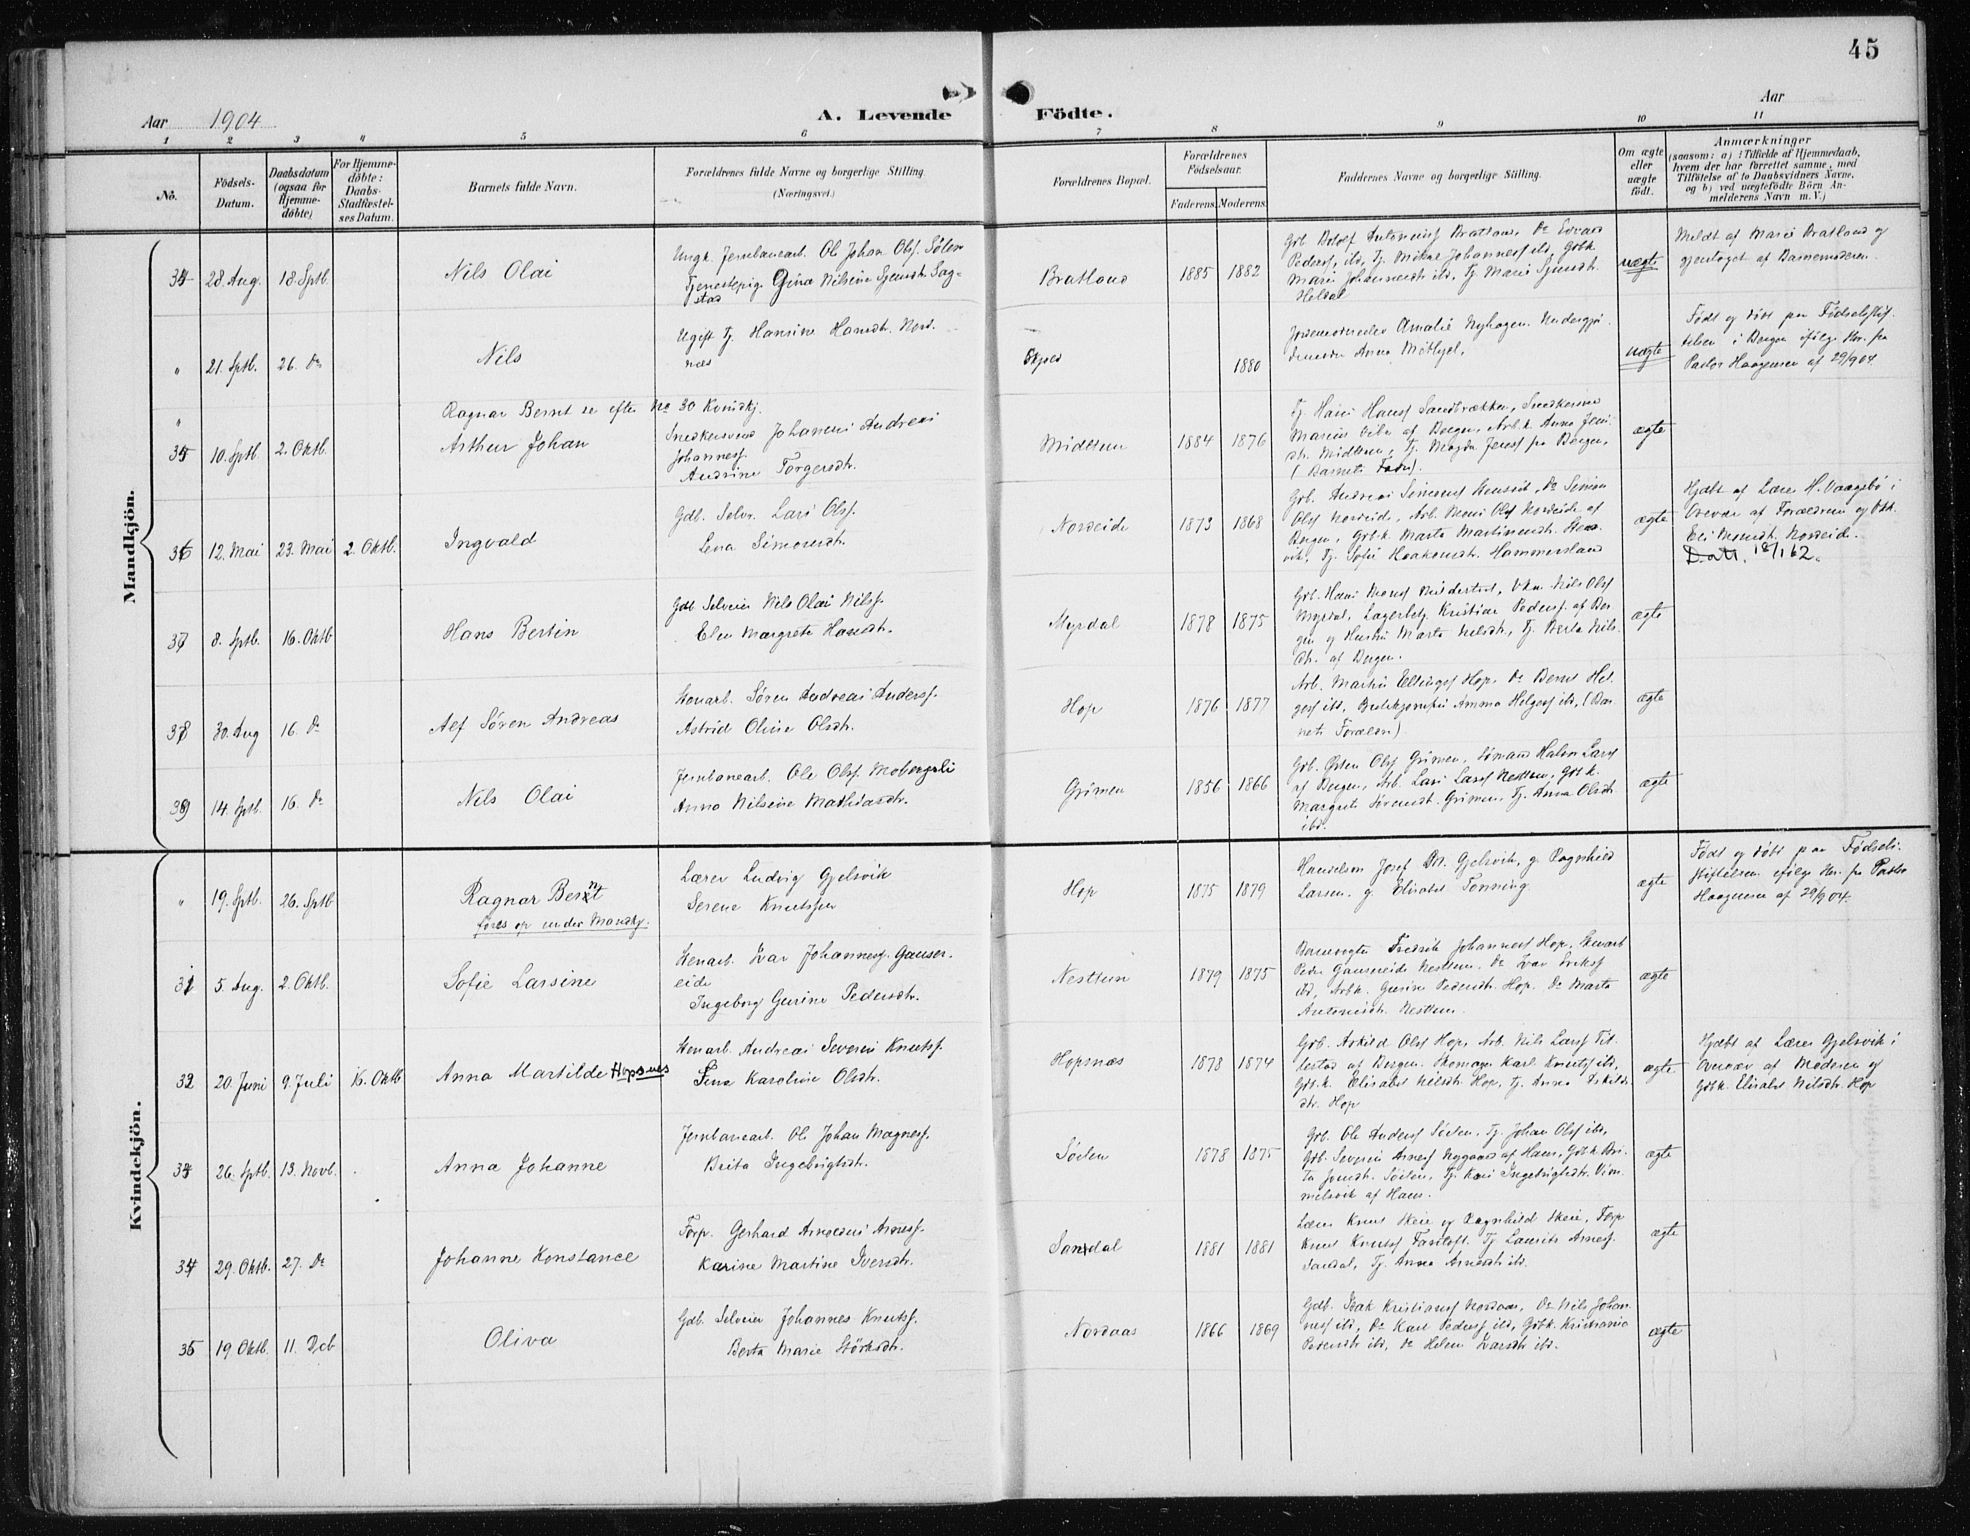 45
Aar 1904
A. Levende
Födte.
Aar
1 2 3 4 5 6 7 8 9 10 11
No.
Födsels-
Datum.
Daabsdatum
(ogsaa for
Hjemme-
døbte)
For Hjemme-
døbte:
Daabs-
Stadfæstel-
ses Datum.
Barnets fulde Navn.
Forældrenes fulde Navne og borgerlige Stilling.
(Næringsvei.)
Forældrenes Bopæl.
Forældrenes
Fødselsaar.
Faderens. Moderens.
Faddernes Navne og borgerlige Stilling.
Om ægte
eller
uægte
født.
Anmærkninger
(saasom: a) i Tilfælde af Hjemmedaab,
hvem der har forrettet samme, med
Tilföielse af to Daabsvidners Navne,
og b) ved uægtefödte Börn An-
melderens Navn m. V.)
Mandkjön.
34 28. Aug. 18. Sptb. Nils Olai
Ungk. Jernbanearb. Ole Johan Olsf. Sølen
Tjenestepige Gina Nilsine Sjursdt. Sag-
stad
Bratland 1885 1882
Marie Johannesdt ibd, Tj. Marie Sjursdt.
Heldal
uægte
Meldt af Marie Bratland og
gjentaget af Barnemoderen.
" 21. Sptb. 26. Do Nils
Ugift Tj. Hansine Hansdt. Nord-
næs
1880
Jordemoderelev Amalie Nyhagen.
uægte
Født og døbt paa Fødselsstif-
telsen i Bergen ifølge
Pastor Haagensen af 29/9 04
" Ragnar Bernt se efter No 30 Kvindkj.
35 10. Sptb. 2. Oktb. Arthur Johan
Snedkersvend Johannes Andreas
Johannesf.
Andrine Torgersdt.
Midttun 1884 1876
Tj. Hans Hansf Sandbrækken, Snedkersvend
dt. Midttun, Tj. Magda Jensf fra Bergen,
(Barnets Fader).
ægte
36 12. Mai 23. Mai 2. Oktb. Ingvald
Gdb. Selv. Lars Olsf.
Lena Simonsdt.
Nordeide 1873 1868
Olsf Nordeide, Arb. Mons Olsf Nordeide af
Bergen, Gbk. Marta Martinusdt.
vik, Tj. Sofie Haakonsdt. Hammersland
ægte
Hjdbt. af Lærer H. Vaagsbø i
Overvær af Forældrene og
Eli Monsdt. Nordeide.
Død 18/1 62.
37 8. Sptb. 16. Oktb Hans Bertin
Gdb. Selveier Nils Olai Nilsf.
Elen Margrete Hansdt.
Myrdal 1878 1875
Gbr. Hans Monsf Mildestvet, Ukm. Nils Olsf
Myrdal, Lagerbetj. Kristian Pedersf. af Ber-
gen og Hustru Marta Nilsdt, Tj. Berta Nils-
dt. af Bergen.
ægte
38 30. Aug 16. Do Alf Søren Andreas
Stenarb. Søren Andreas Andersf.
Astrid Oline Olsdt.
Hop 1876 1877
Arb. Martin Ellingsf Hop, Do Bernt Hel-
gesf ibd, Butikjomfru Amma Helgesf ibd, (Bar-
nets Forældre)
ægte
39 14. Sptb. 16. Do Nils Olai
Jernbanearb. Ole Olsf. Mobergsli
Anna Nilsine Mathiasdt.
Grimen 1856 1866
Gbr. Østen Olsf Grimen, Sømand Halvor Larsf
af Bergen, Arb. Lars Larsf Nesttun, Gbk.
Margrete Sørensdt. Grimen, Tj. Anna Olsdt
ibd.
ægte
Kvindekjön.
" 19. Sptb. 26. Sptb Ragnar Bernt
føres op under Mandkj.
Lærer Ludvig Gjelsvik
Serene Knutsen
Hop 1875 1879
Handelsm. Josef M. Gjelsvik, g. Ragnhild
Larsen. g. Elisabet Tonning.
ægte
Født og døbt paa Fødsels-
stiftelsen ifølge fra Pastor
Haagensen af 29/9 04.
31 5. Aug. 2. Oktb. Sofie Larsine
Stenarb. Ivar Johannesf. Gauser-
eide
Ingeborg Gurine Pedersdt.
Nesttun 1879 1875
Banevogter Fredrik Johannesf Hop, Stenarb
Peder Gausereide Nesttun, Do Ivar Eriksf
ibd, Arbk. Gurine Pedersdt. Hop. Do Marta
Antonisdt. Nesttun.
ægte
32 20. Juni 9. Juli 16. Oktb Anna Martilde Hopsnes
Stenarb. Andreas Severin Knutsf.
Lina Karoline Olsdt.
Hopsnæs 1878 1874
Gbr. Askild Olsf Hop, Arb. Nils Larsf Tit-
lestad af Bergen. Skomager Karl Knutsf ibd,
Gbk. Elisabet Nilsdt Hop, Tj. Anna Askilds-
dtr. Hop
ægte
Hjdbt af Lærer Gjelsvik i
Overvær af Moderen og
Gbk. Elisabet Nilsdt. Hop
33 26. Sptb. 13. Novb. Anna Johanne
Jernbanearb. Ole Johan Magnesf.
Brita Ingebrigtsdt.
Sølen 1878 1875
Gbr. Ole Andersf Sølen, Tj. Johan Olsf ibd,
Gbr. Severin Arnesf Nygaard af Haus, Gbk Bri-
ta Jonsdt. Sølen, Tj. Kari Ingebrigtsdt. Vim-
melsvik af Haus.
ægte
34 29. Oktb. 27. Do Johanne Konstance
Forp. Gerhard Arnoldus Arnesf.
Karine Martine Iversdt.
Sandal 1881 1881
Lærer Knut Skeie og Ragnhild Skeie, Forp
Knut Knutsf Fantoft. Tj Laurits Arnesf.
Sandal, Tj. Anna Arnesdt ibd.
ægte
35 19 Oktb. 11. Dcb Oliva
Gdb. Selveier Johannes Knutsf.
Berta Marie Størksdt.
Nordaas 1866 1869
Gdb. Isak Kristiansf Nordaas, Do Nils Johan-
nesf ibd, Do Karl Pedersf ibd, Gbk. Kristiania
Pedersdt ibd, Do Helene Ivarsdt ibd.
ægte